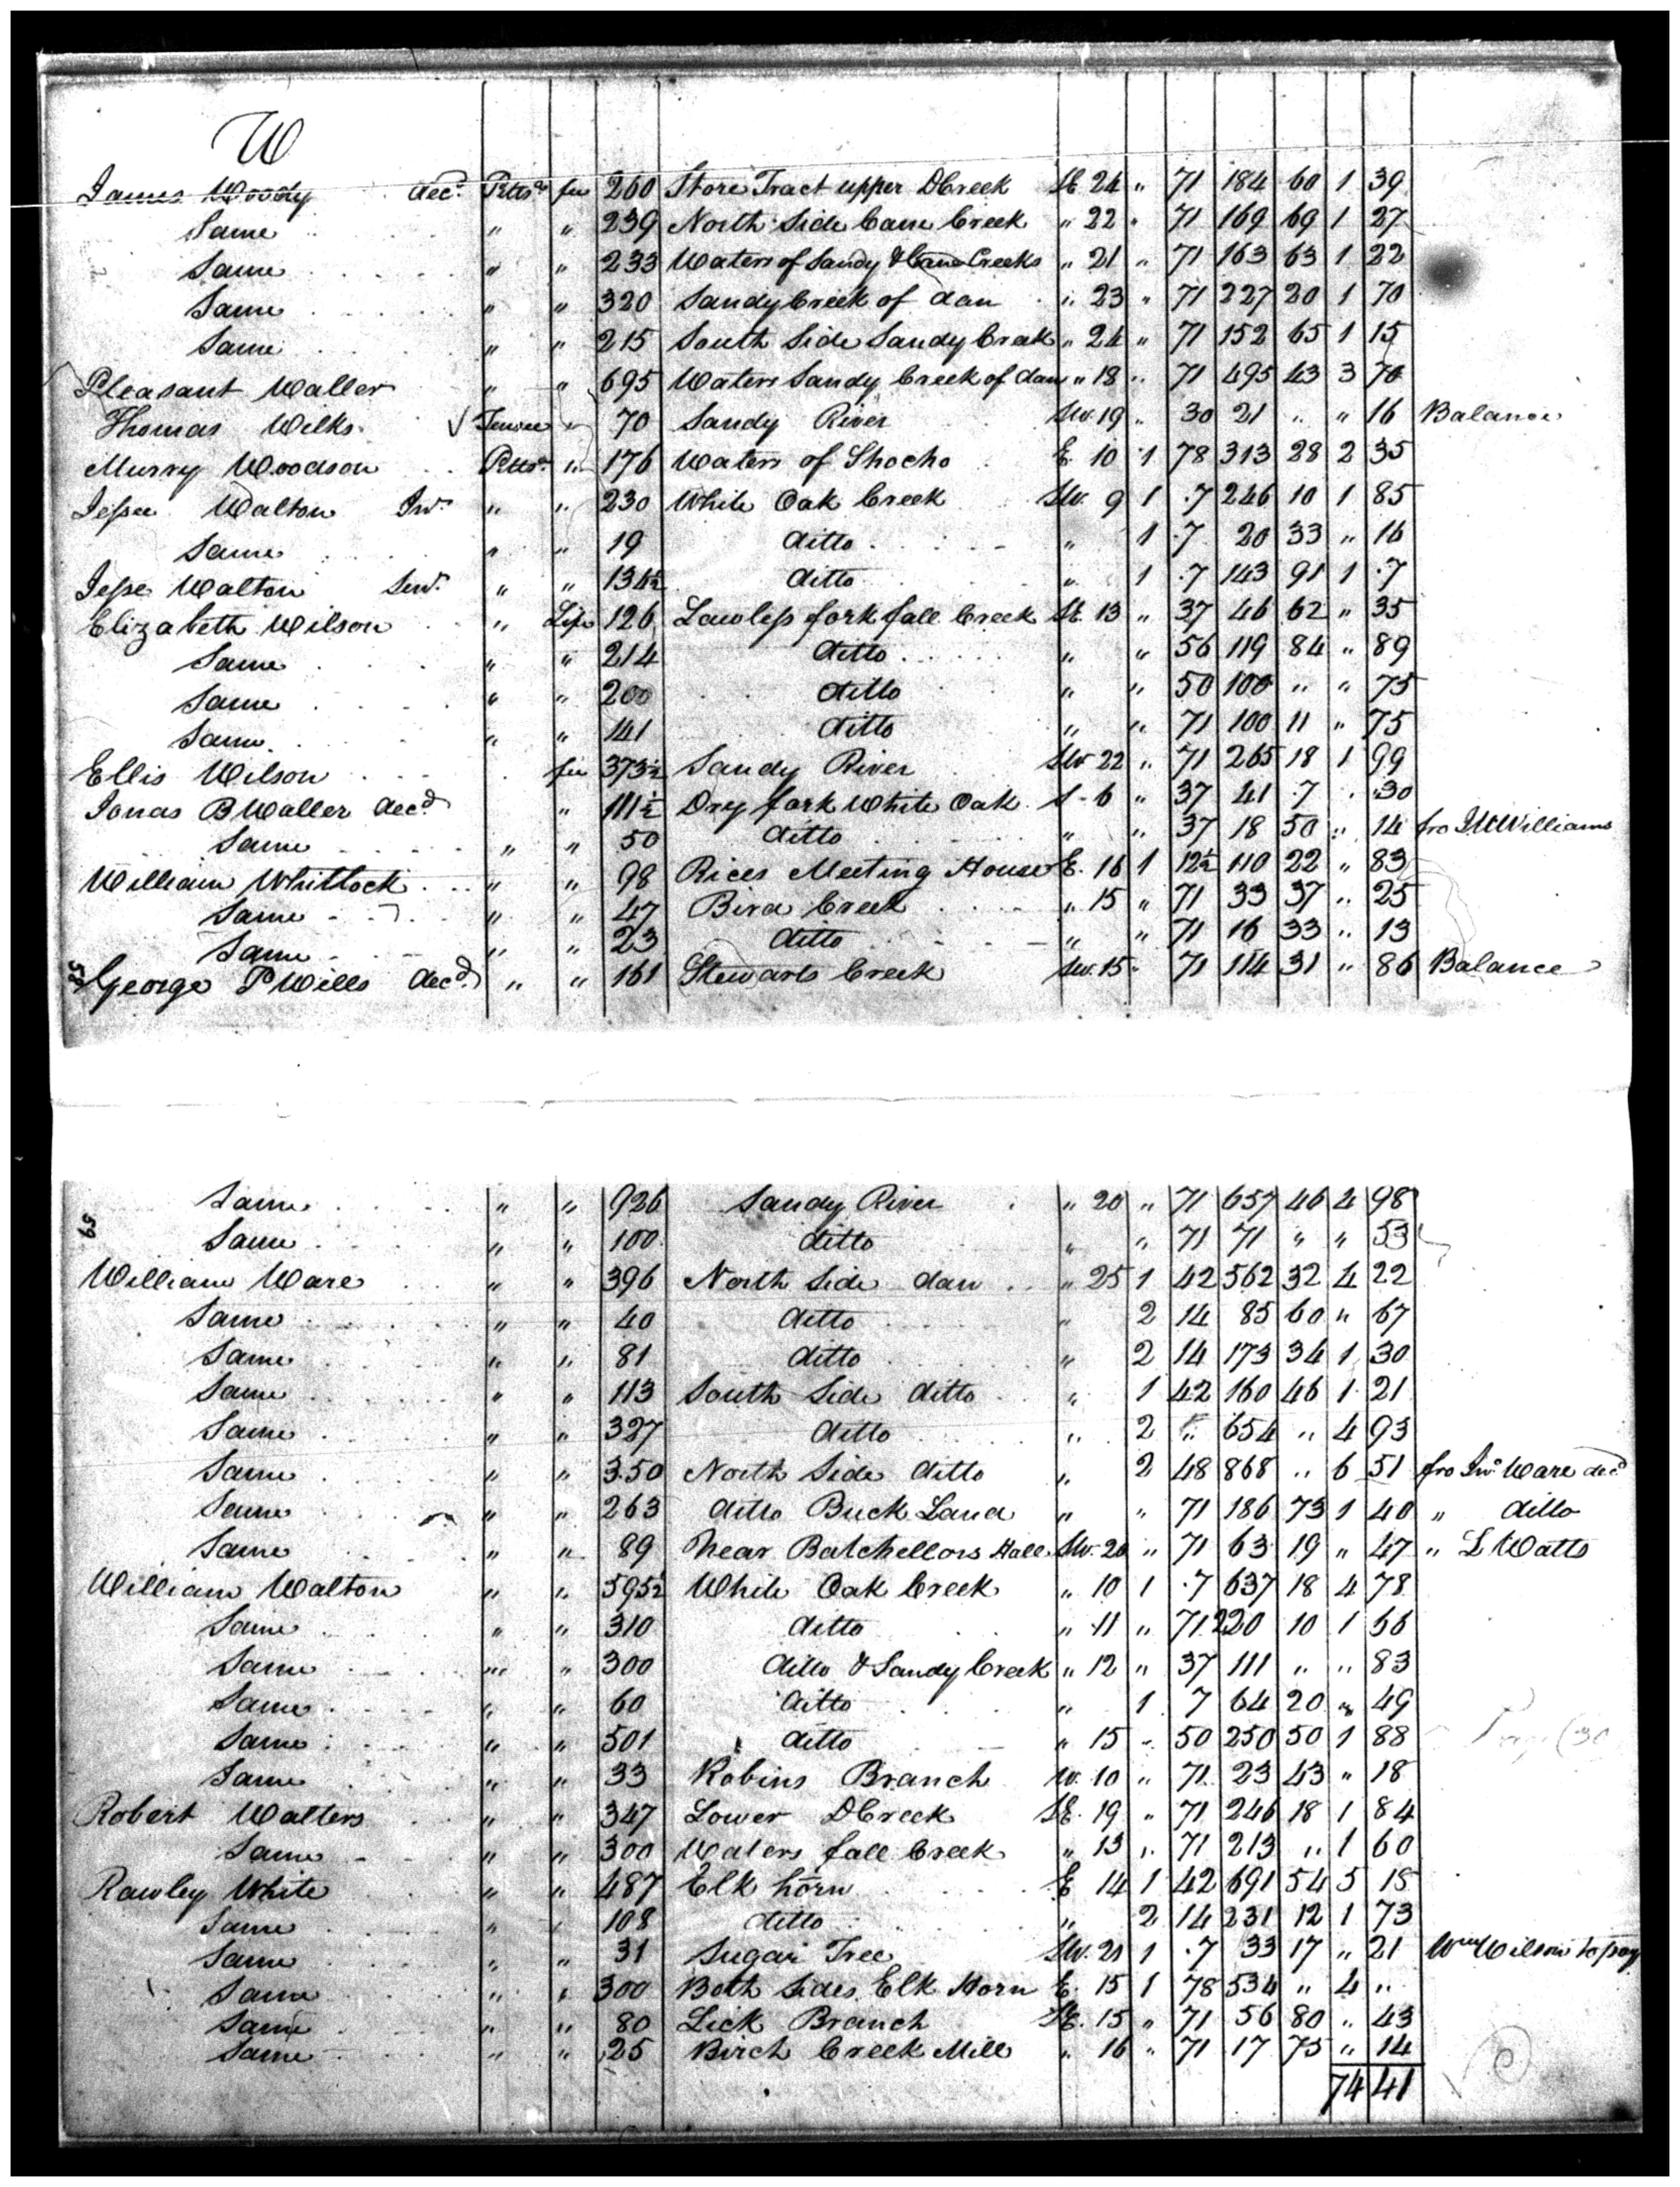 W
James Woody decd. Pitts. fee 260 Store Tract upper DCreek SE 24 " 71 184 60 1 39
Same " " 239 North Side Cane Creek " 22 " 71 169 69 1 27
Same " " 233 Waters of Sandy & Cane Creeks " 21 " 71 163 63 1 22
Same " " 320 Sandy Creek of dan " 23 " 71 227 20 1 70
Same " " 215 South Side Sandy Creek " 24 " 71 152 65 1 15
Pleasant Waller " " 695 Waters Sandy Creek of dan " 18 " 71 495 43 3 70
Thomas Wilks √ " 70 Sandy River SW. 19 " 30 21 " " 16 Balance
Murry Woodson Pitts. " 176 Waters of Shocho E. 10 1 78 313 28 2 35
Jessee Walton Jnr. " " 230 White Oak Creek SW. 9 1 .7 246 10 1 85
Same " " 19 ditto " 1 .7 20 33 " 16
Jesse Walton Senr. " " 134½ ditto " 1 .7 143 91 1 .7
Elizabeth Wilson " Life 126 Lawless fork fall Creek SE. 13 " 37 46 62 " 35
Same " " 214 ditto " " 56 119 84 " 89
Same " " 200 ditto " " 50 100 " " 75
Same " " 141 ditto " " 71 100 11 " 75
Ellis Wilson fee 373½ Sandy River SW 22 " 71 265 18 1 99
Jonas B Waller decd " 111½ Dry fork White Oak S - 6 " 37 41 .7 . 30
Same " " 50 ditto " " 37 18 50 " 14 fro J W Williams
William Whitlock " " 98 Rices Meeting House E. 16 1 12½ 110 22 " 83
Same " " 47 Bird Creek " 15 " 71 33 37 " 25
Same " " 23 ditto " " 71 16 33 " 13
58 George P Wills decd. " " 161 Stewarts Creek SW. 15 " 71 114 31 " 86 Balance
Same " " 926 Sandy River " 20 " 71 657 46 4 98
59 Same " " 100 ditto " " 71 71 " " 53
William Ware " " 396 North Side dan " 25 1 42 562 32 4 22
Same " " 40 ditto " 2 14 85 60 " 67
Same " " 81 ditto " 2 14 173 34 1 30
Same " " 113 South Side ditto " 1 42 160 46 1 21
Same " " 327 ditto " 2 " 654 " 4 93
Same " " 350 North Side ditto " 2 48 868 " 6 51 fro Jno Ware decd
Same " " 263 ditto Buck Land " " 71 186 73 1 40 " ditto
Same " " 89 Near Batchellors Hall SW. 20 " 71 63 19 " 47 " L Watts
William Walton " " 595½ White Oak Creek " 10 1 .7 637 18 4 78
Same " " 310 ditto " 11 " 71 220 10 1 66
Same " " 300 ditto & Sandy Creek " 12 " 37 111 " " 83
Same " " 60 ditto " 1 7 64 20 " 49
Same " " 501 ditto " 15 " 50 250 50 1 88
Same " " 33 Robins Branch W. 10 " 71 23 43 " 18
Robert Walters " " 347 Lower DCreek SE. 19 " 71 246 18 1 84
Same " " 300 Waters fall Creek " 13 " 71 213 " 1 60
Rawley White " " 487 Elk horn E 14 1 42 691 54 5 18
Same " " 108 ditto " 2 14 231 12 1 73
Same " " 31 Sugar Tree SW. 21 1 .7 33 17 " 21 Wm Wilson to pay
Same " " 300 Both Sides Elk Horn E. 15 1 78 534 " 4 "
Same " " 80 Lick Branch SE. 15 " 71 56 80 " 43
Same " " 25 Birch Creek Mill " 16 " 71 17 75 " 14
74 41